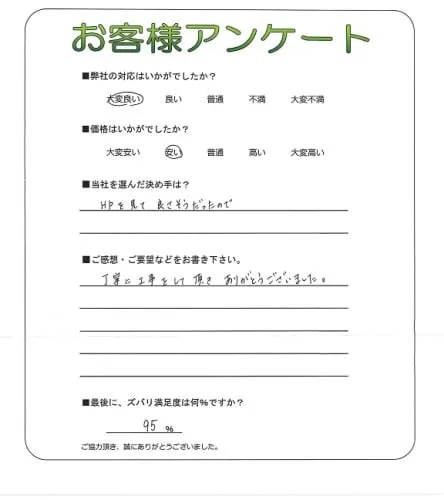 お客様アンケート
■弊社の対応はいかがでしたか？
大変良い 良い 普通 不満 大変不満
■価格はいかがでしたか？
大変安い 安い 普通 高い 大変高い
■当社を選んだ決め手は？
HPを見て 良さそうだったので
■ご感想・ご要望などをお書き下さい。
丁寧に工事をして頂き ありがとうございました。
■最後に、ズバリ満足度は何%ですか？
95 %
ご協力頂き、誠にありがとうございました。